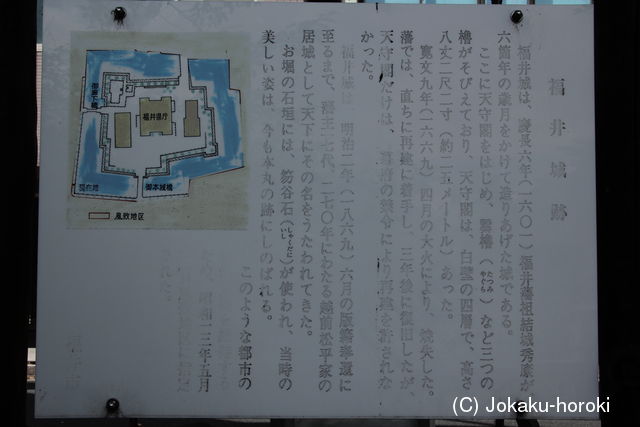 福井城跡
福井城は、慶長六年(一六〇一)福井藩祖結城秀康が
六箇年の歳月をかけて造りあげた城である。
ここに天守閣をはじめ、巽櫓(たつみやぐら)など三つの
櫓がそびえており、天守閣は、白壁の四層で、高さ
八丈二尺二寸(約二五メートル)あった。
寛文九年(一六六九)四月の大火により、焼失した。
藩では、直ちに再建に着手し、三年後に復旧したが、
天守閣だけは、幕府の禁令により再建を許されな
かった。
福井城は、明治二年(一八六九)六月の版籍奉還に
至るまで、藩主十七代、二七〇年にわたる越前松平家の
居城として天下にその名をうたわれてきた。
お堀の石垣には、笏谷石(しゃくだにいし)が使われ、当時の
美しい姿は、今も本丸の跡にしのばれる。
このような都市の
昭和一三年五月
された。
福井県庁
御廊下橋
現在地
御本城橋
風致地区
(C) Jokaku-horoki